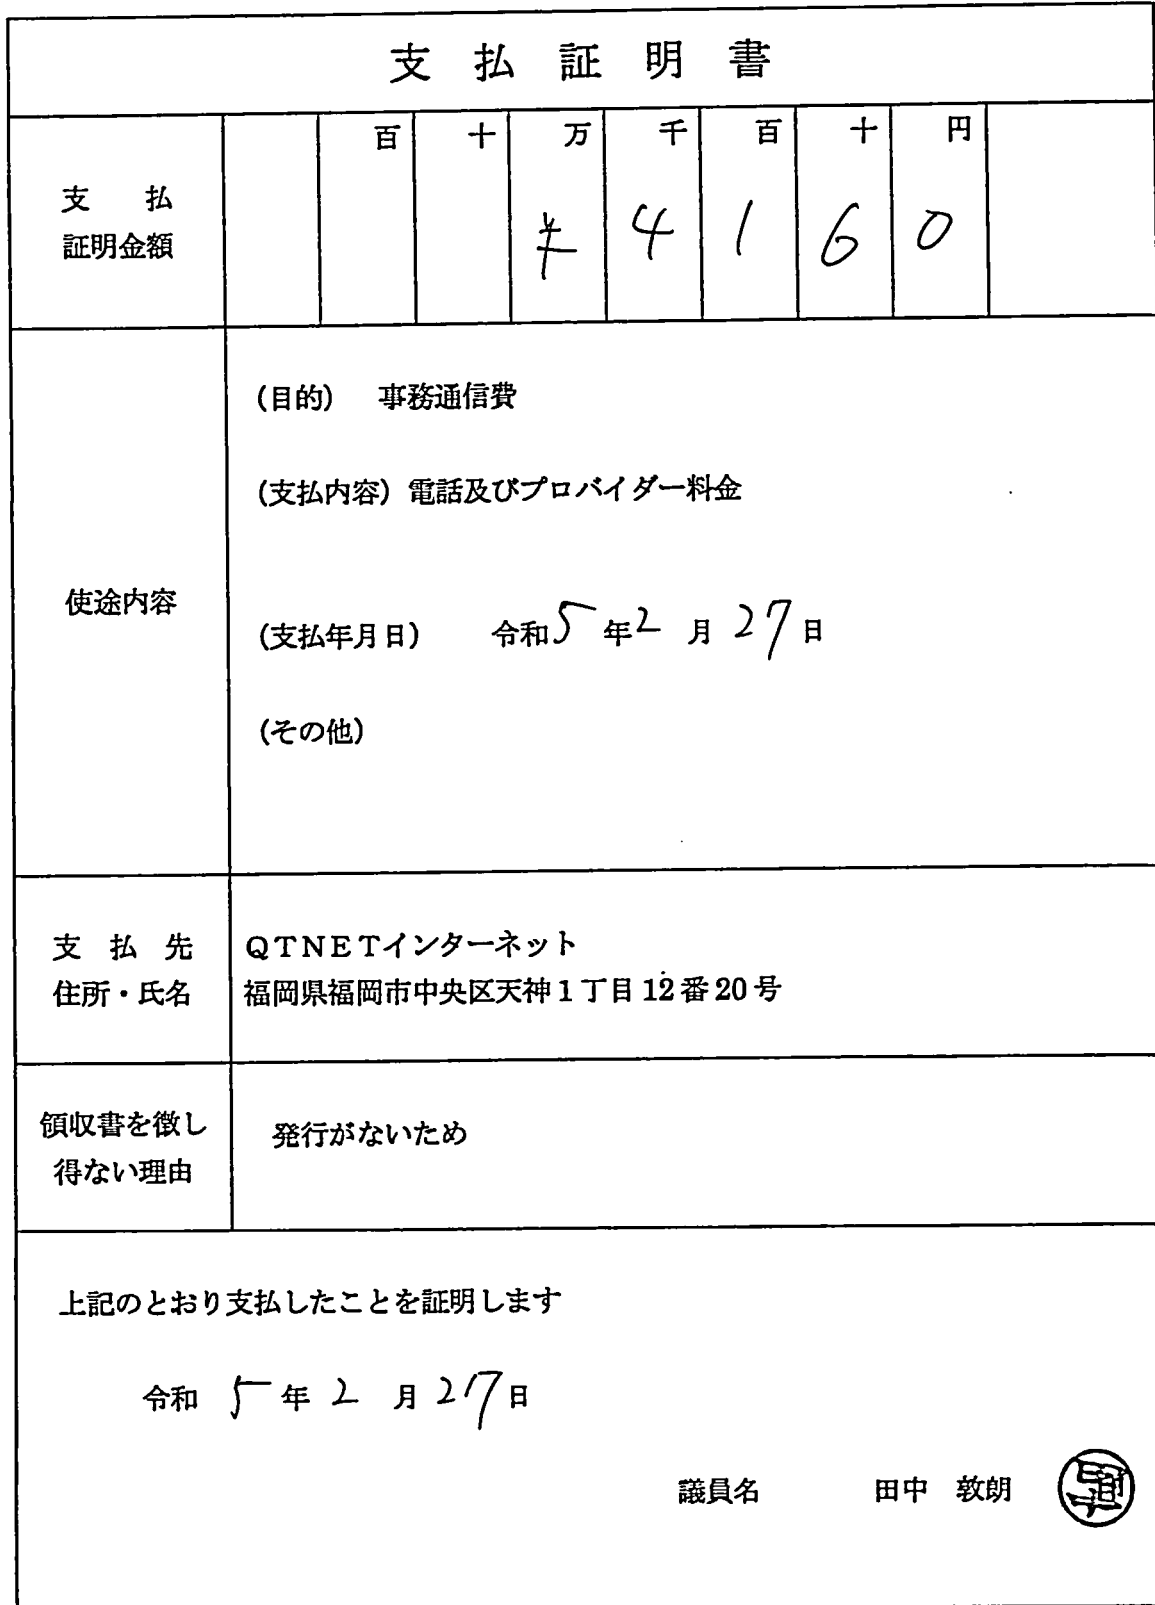 支払証明書
百 十 万 千 百 十 円
支払
証明金額
¥ 4 1 6 0
(目的) 事務通信費
(支払内容) 電話及びプロバイダー料金
使途内容
(支払年月日) 令和5年2月27日
(その他)
支払先
住所・氏名
QTNETインターネット
福岡県福岡市中央区天神1丁目12番20号
領収書を徴し
得ない理由
発行がないため
上記のとおり支払したことを証明します
令和5年2月27日
議員名 田中 敦朗